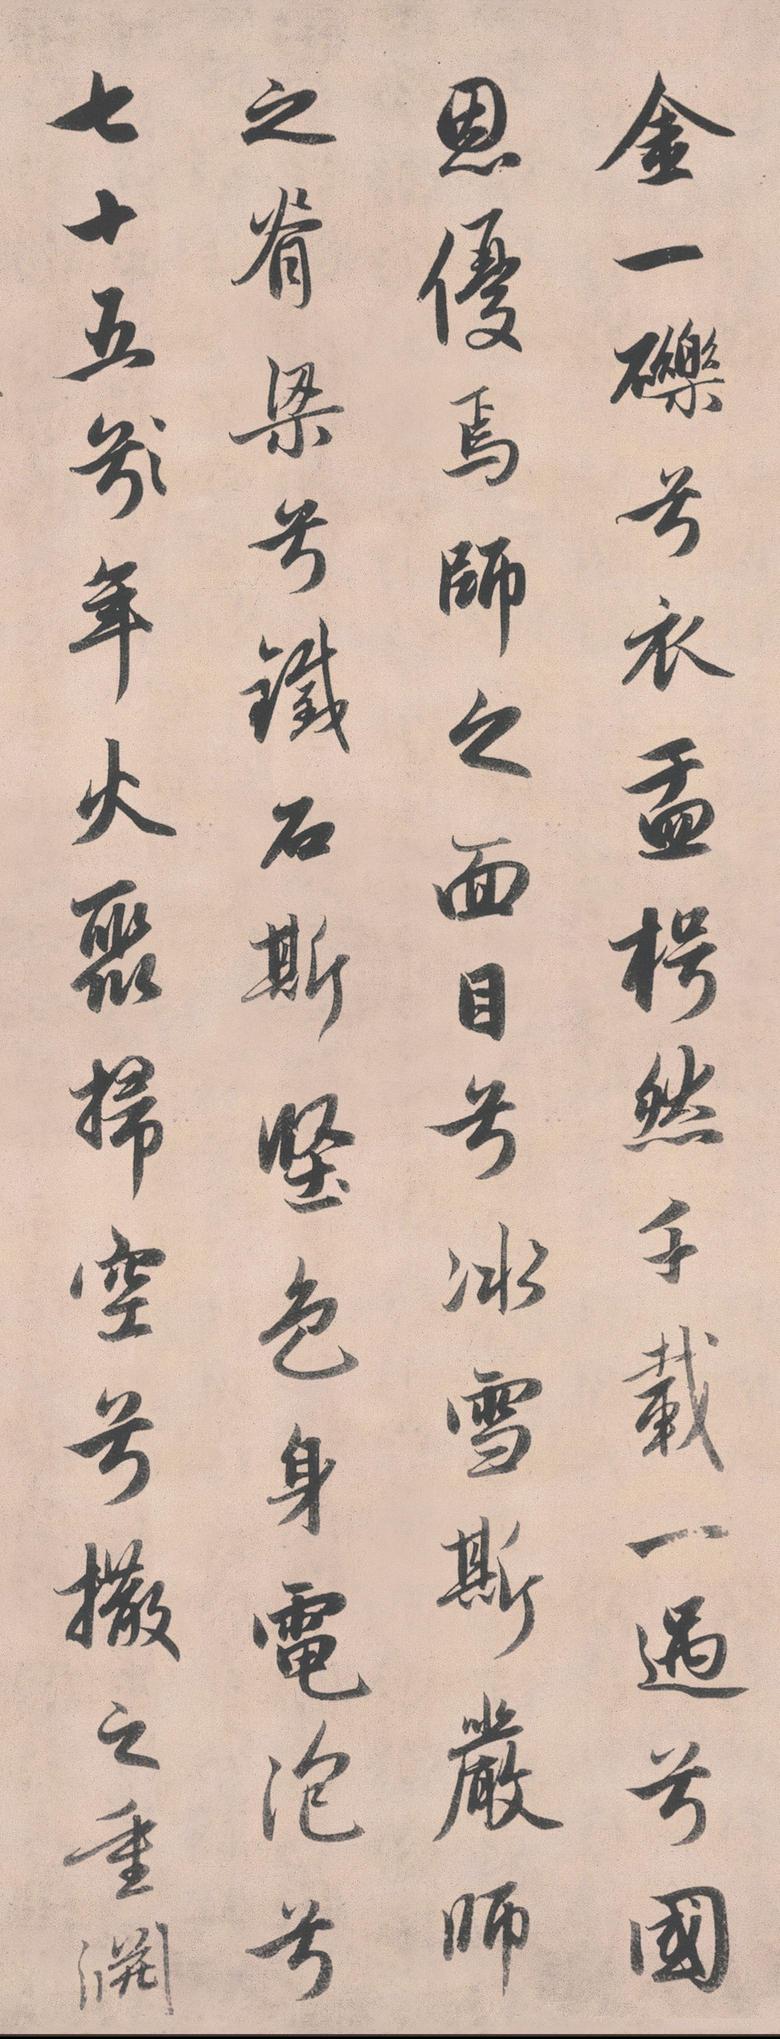 金一礫兮衣盂枵然千載一遇兮國
恩優焉師之面目兮冰雪斯嚴師
之脊梁兮鐵石斯堅色身電泡兮
七十五歲年火聚掃空兮撒之重淵